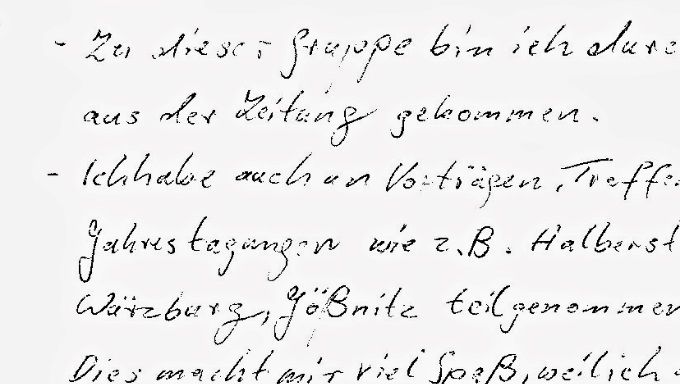 - Zu dieser Gruppe bin ich durc
aus der Zeitung gekommen.
- Ich habe auch an Vorträgen, Treffe
Jahrestagungen wie z.B. Halberst
Würzburg, Gößnitz teilgenommen
Dies macht mir viel Spaß, weil ich